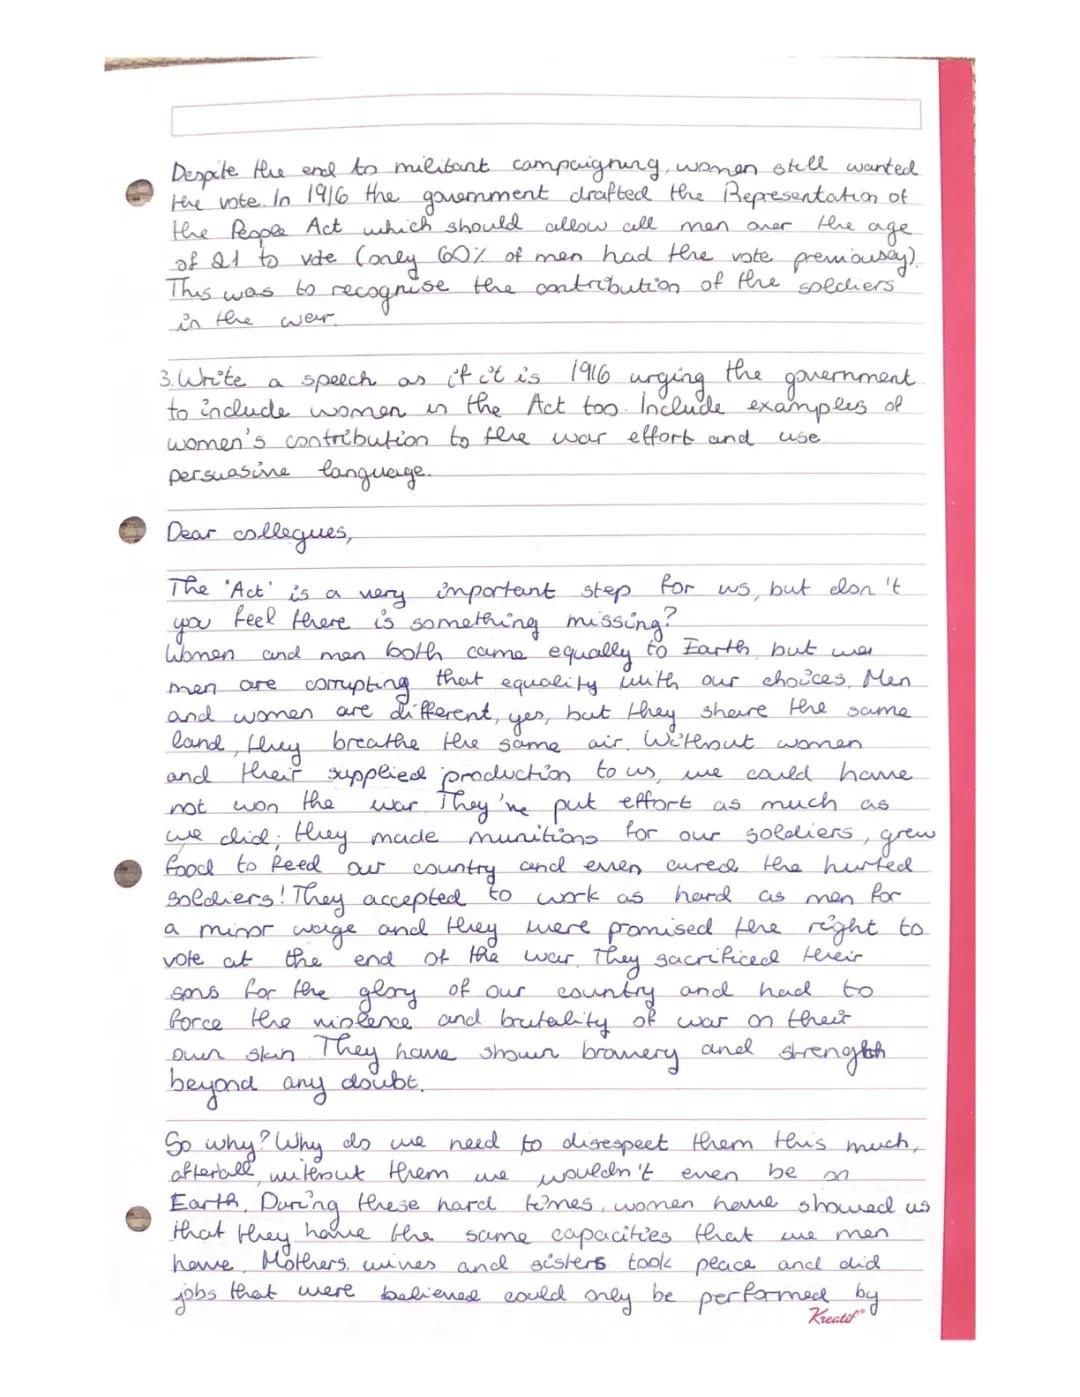 Despite the end to militant campaigning, women still wanted
the vote. In 1916 the government drafted the Representation of
the People Act which should allow all men over the age
of 21 to vote (only 60% of men had the vote previousey).
This was to recognise the contribution of the soldiers
in the war.
3. Write a speech as if it is 1916 urging the government
to include women in the Act too. Include examples of
women's contribution to the war effort and use
persuasive language.
Dear collegues,
The 'Act' is a very important step for us, but don't
you feel there is something missing?
Women and men both came equally to Earth, but
men are corrupting that equality with our choices. Men
and women are different, yes, but they share the same
land, they breathe the same air. Without women
and their supplied production to us, we could have
not won the war. They've put effort as much as
we did; they made munitions for our soldiers, grew
food to feed our country and even cured the hurted
soldiers! They accepted to work as hard as men for
a minor wage and they were promised the right to
vote at the end of the war. They sacrificed their
sons for the glory of our country and had to
force the violence and brutality of war on their
own skin. They have shown bravery and strength
beyond any doubt.
So why? Why do we need to disrespect them this much,
afterall, without them we wouldn't even be on
Earth. During these hard times, women have showed us
that they have the same capacities that we men
have. Mothers, wives and sisters took peace and did
jobs that were believed could only be performed by
Kreatif